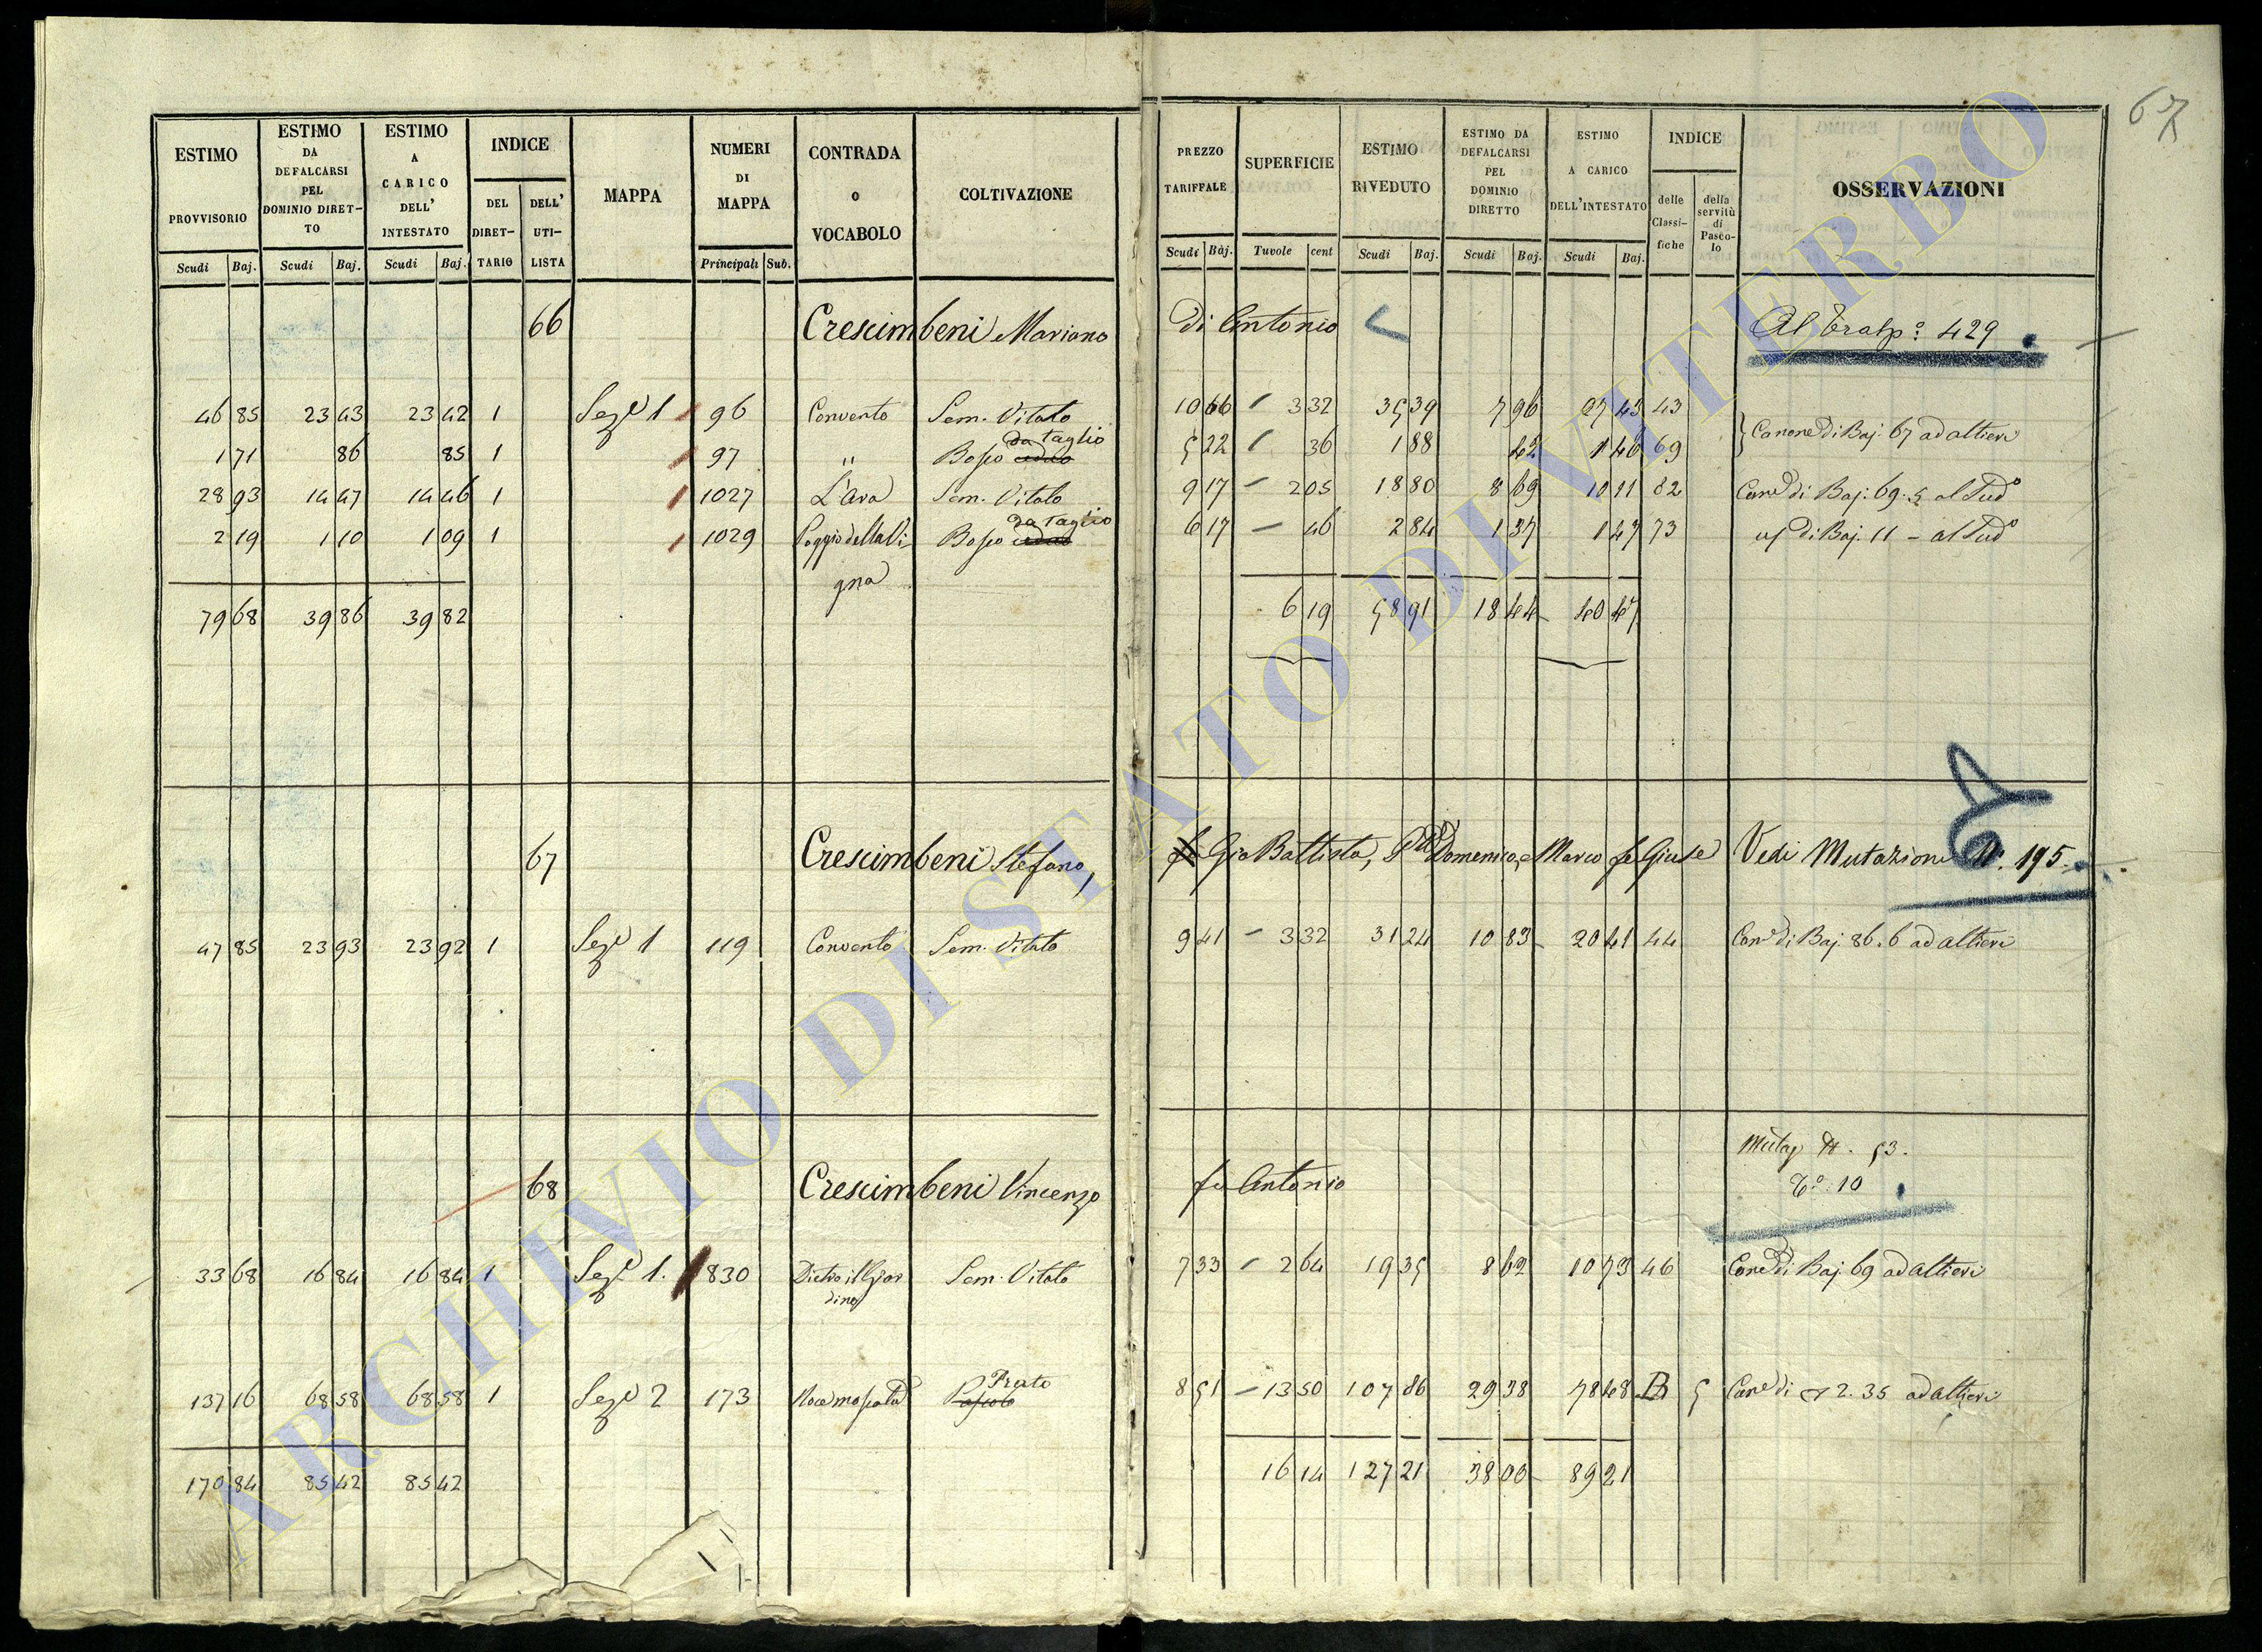 67
ESTIMO PROVVISORIO | ESTIMO DA DEFALCARSI PEL DOMINIO DIRETTO | ESTIMO A CARICO DELL' INTESTATO | INDICE DEL DIRETTARIO | DELL' UTILISTA | MAPPA | NUMERI DI MAPPA | CONTRADA O VOCABOLO | COLTIVAZIONE | PREZZO TARIFFALE | SUPERFICIE | ESTIMO RIVEDUTO | ESTIMO DA DEFALCARSI PEL DOMINIO DIRETTO | ESTIMO A CARICO DELL'INTESTATO | INDICE delle Classifiche | della servitù di Pascolo | OSSERVAZIONI
Scudi Baj. | Scudi Baj. | Scudi Baj. | Principali Sub. | Scudi Baj. | Tavole cent | Scudi Baj. | Scudi Baj. | Scudi Baj.
66 Crescimbeni Mariano di Antonio Al Trasp.º 429
46 85 | 23 43 | 23 42 | 1 | Sezᵉ 1 | 96 | Convento | Sem. Vitato | 10 66 | 3 32 | 35 39 | 7 96 | 27 43 | 43
1 71 | 86 | 85 | 1 | 97 | " | Bosco da taglio | 5 22 | 36 | 1 88 | 42 | 1 46 | 69 | Canone di Baj. 67 ad altieri
28 93 | 14 47 | 14 46 | 1 | 1027 | L'Ara | Sem. Vitato | 9 17 | 2 05 | 18 80 | 8 69 | 10 11 | 82 | Canᵉ di Baj. 69.5 al Sudº
2 19 | 1 10 | 1 09 | 1 | 1029 | Poggio della Vigna | Bosco da taglio | 6 17 | 46 | 2 84 | 1 37 | 1 47 | 73 | di Baj. 11 - al Sudº
79 68 | 39 86 | 39 82 | 6 19 | 58 91 | 18 44 | 40 47
67 Crescimbeni Stefano, Gio Battista, Domenico, e Marco fu Giuse Vedi Mutazione Nº. 195.
47 85 | 23 93 | 23 92 | 1 | Sezᵉ 1 | 119 | Convento | Sem. Vitato | 9 41 | 3 32 | 31 24 | 10 83 | 20 41 | 44 | Canᵉ di Baj. 86.6 ad altieri
Mutaz N. 53.
68 Crescimbeni Vincenzo fu Antonio Tº. 10
33 68 | 16 84 | 16 84 | 1 | Sezᵉ 1. | 830 | Dietro il Giardino | Sem. Vitato | 7 33 | 2 64 | 19 35 | 8 62 | 10 73 | 46 | Canᵉ di Baj. 69 ad altieri
137 16 | 68 58 | 68 58 | 1 | Sezᵉ 2 | 173 | Noce moscata | Pascolo Prato | 8 51 | 13 50 | 107 86 | 29 38 | 78 48 | B | 5 | Canᵉ di 2.35 ad altieri
170 84 | 85 42 | 85 42 | 16 14 | 127 21 | 38 00 | 89 21
ARCHIVIO DI STATO DI VITERBO